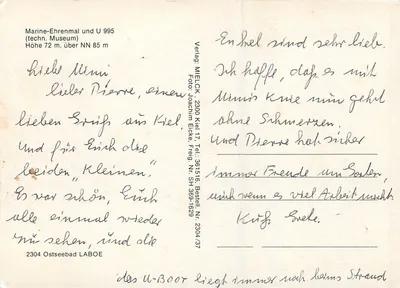 Marine-Ehrenmal und U 995
(techn. Museum)
Höhe 72 m. über NN 85 m
Liebe Mimi
lieber Pierre, einen
lieben Gruß aus Kiel
und für Euch die
beiden „Kleinen".
Es war schön, Euch
alle einmal wieder
zu sehen, und die
2304 Ostseebad LABOE
Verlag: MIELCK 2300 Kiel 17, Tel. 361516, Bestell. Nr. 2304/37
Foto: Joachim Eicke, Freig. Nr. SH 369-1629
Enkel sind sehr lieb.
Ich hoffe, daß es mit
Mimis Knie nun geht
ohne Schmerzen.
Und Pierre hat sicher
immer Freude am Garten,
auch wenn es viel Arbeit macht.
Kuß Grete.
das U-Boot liegt immer noch beims Strand